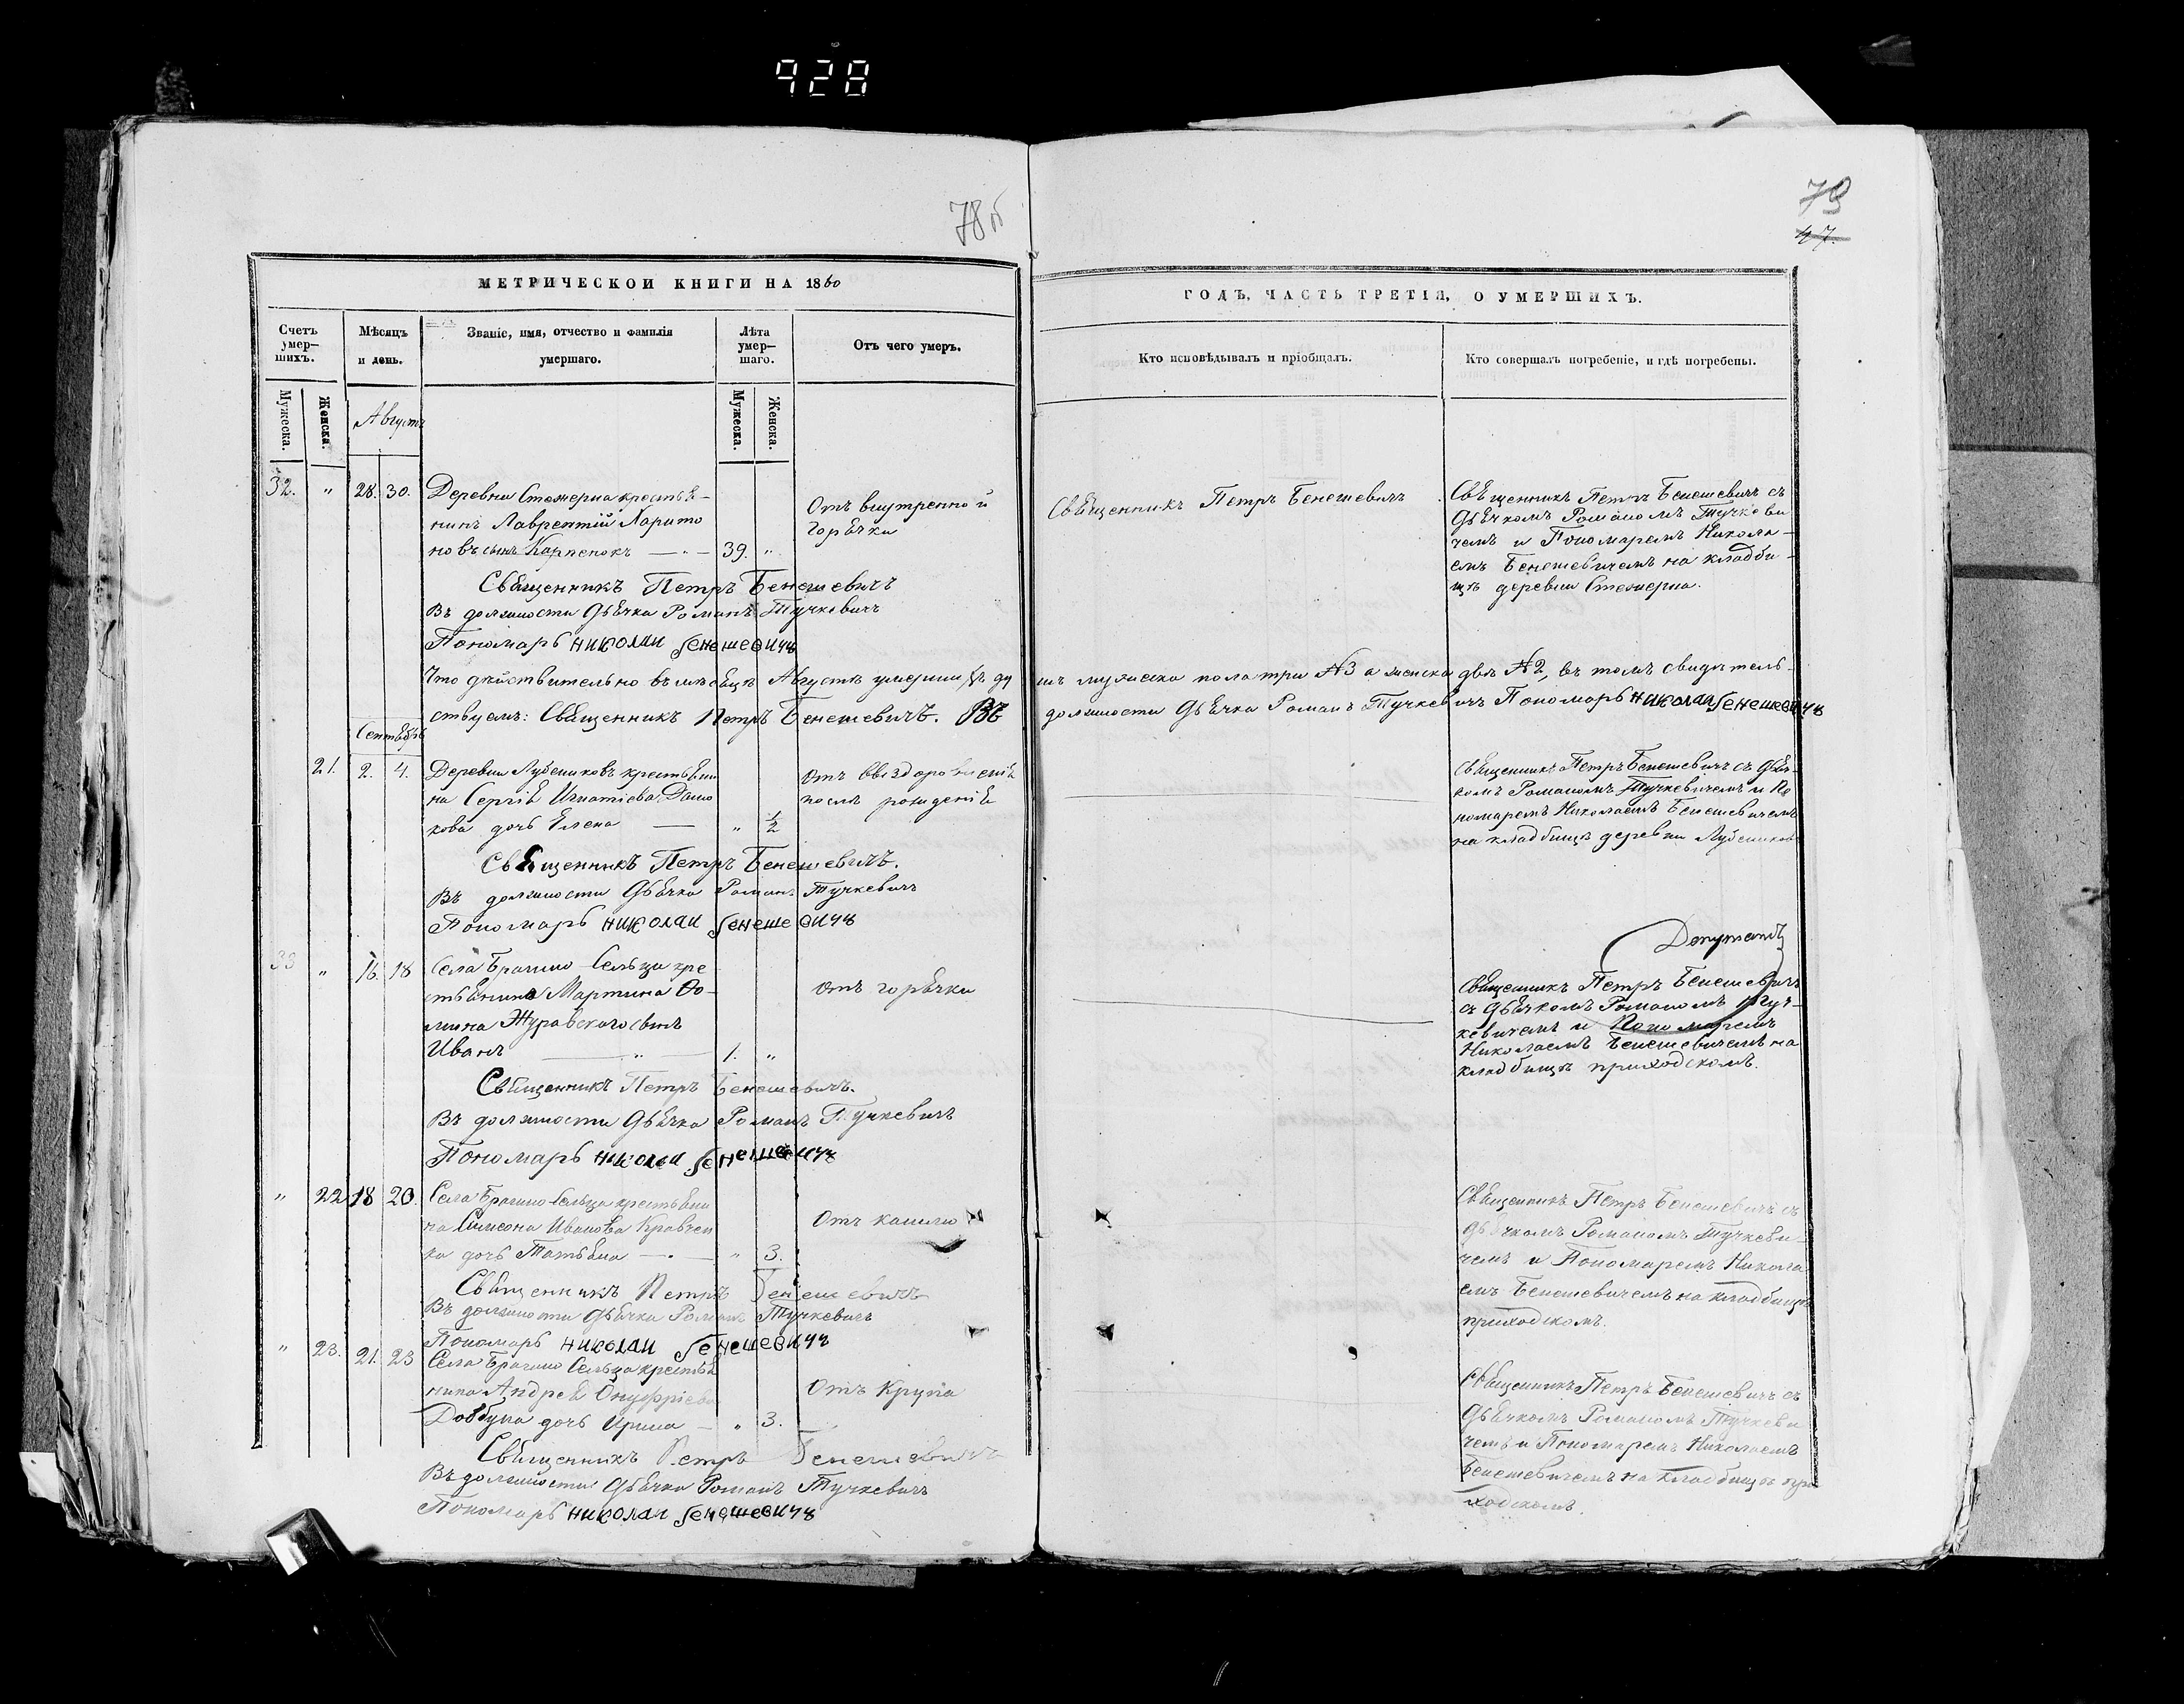 928
78 об
79
47.
МЕТРИЧЕСКОЙ КНИГИ НА 1860
ГОДЪ, ЧАСТЬ ТРЕТІЯ, О УМЕРШИХЪ.
Счетъ умер-
шихъ.
Мѣсяцъ
и день.
Званіе, имя, отчество и фамилія
умершаго.
Лѣта
умер-
шаго.
Отъ чего умеръ.
Кто исповѣдывалъ и пріобщалъ.
Кто совершалъ погребеніе, и гдѣ погребены.
Мужеска.
Женска.
Августъ
Мужеска.
Женска.
32. " 28. 30. Деревни Стежерна крестья-
нинъ Лаврентій Харито
новъ сынъ Карпенокъ — " — 39. "
Отъ внутренной
горячки
Священникъ Петръ Бенешевичъ
Священникъ Петръ Бенешевичъ съ
дьячкомъ Романомъ Тучкеви
чемъ и Пономаремъ Никола-
емъ Бенешевичемъ на кладби-
щѣ деревни Стежерна.
Священникъ Петръ Бенешевичъ
Въ должности дьячка Романъ Тучкевичъ
Пономарь Николаи Бенешевичъ
Что дѣйствительно въ мѣсяцѣ Августѣ умерши[хъ] ду
шъ мужеска пола три №3 а женска двѣ №2, въ томъ свидѣтель-
ствуемъ: Священникъ Петръ Бенешевичъ. Въ
должности дьячка Романъ Тучкевичъ Пономарь Николаи Бенешевичъ
Сентябрь
21. 2. 4. Деревни Лубениковъ крестьяни
на Сергія Игнатіева
кова дочь Елена — " 1/2
отъ
послѣ рожденія
Священникъ Петръ Бенешевичъ съ дьяч-
комъ Романомъ Тучкевичемъ и По
номаремъ Николаемъ Бенешевичемъ
на кладбищѣ деревни Лубениковъ
Священникъ Петръ Бенешевичъ.
Въ должности дьячка Романъ Тучкевичъ
Пономарь Николаи Бенешевичъ
Депутатъ
33 " 16. 18 Села Брагино Сельца кре
стьянина Мартина Фо-
мина Журавского сынъ
Иванъ — " — 1. "
отъ горячки
Священникъ Петръ Бенешевичъ
съ дьячкомъ Романомъ Туч-
кевичемъ и Пономаремъ
Николаемъ Бенешевичемъ на
кладбищѣ приходскомъ.
Священникъ Петръ Бенешевичъ.
Въ должности дьячка Романъ Тучкевичъ
Пономарь Николаи Бенешевичъ
" 22 18 20. Села Брагино Сельца крестьяни
на Симеона Иванова Кравчен
ка дочь Татьяна — " 3.
Отъ кашлю
Священникъ Петръ Бенешевичъ съ
дьячкомъ Романомъ Тучкеви-
чемъ и Пономаремъ Никола
емъ Бенешевичемъ на кладбищѣ
приходскомъ.
Священникъ Петръ Бенешевичъ
Въ должности дьячка Романъ Тучкевичъ
Пономарь Николаи Бенешевичъ
" 23. 21. 23 Села Брагино Сельца крестья
нина Андрея Онуфріева
Довбуна дочь Ирина — " 3.
Отъ крупа
Священникъ Петръ Бенешевичъ съ
дьячкомъ Романомъ Тучкеви
чемъ и Пономаремъ Николаемъ
Бенешевичемъ на кладбищѣ при
ходскомъ.
Священникъ Петръ Бенешевичъ
Въ должности дьячка Романъ Тучкевичъ
Пономарь Николаи Бенешевичъ